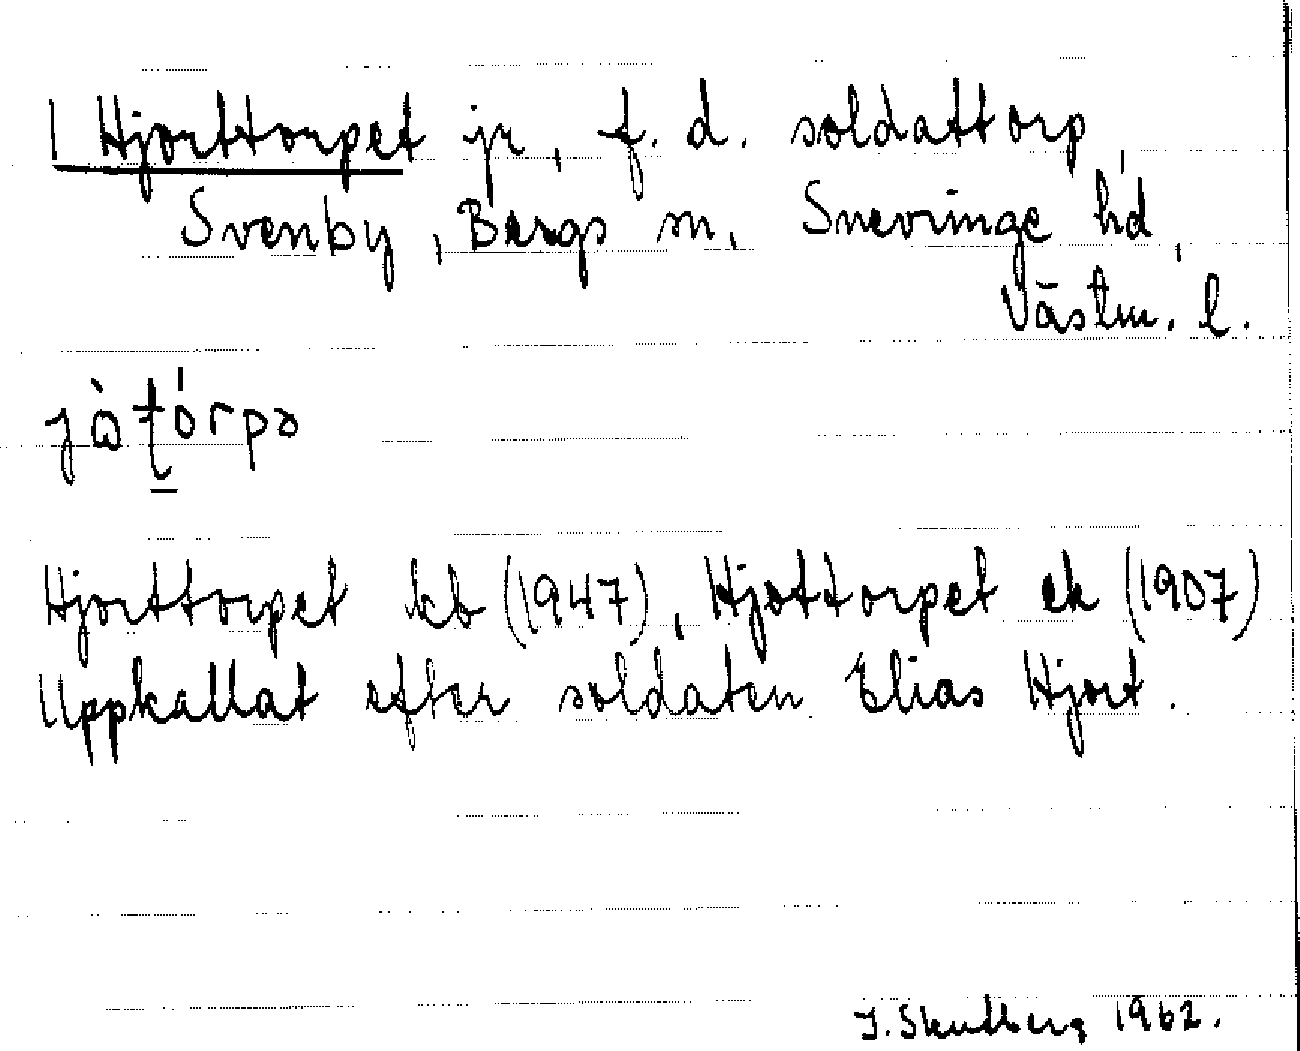 1 Hjorttorpet jr, f. d. soldattorp,
Svenby, Bergs sn, Snevringe hd,
Västm. l.
Hjorttorpet kb (1947), Hjottorpet ek (1907)
Uppkallat efter soldaten Elias Hjort.
1962.